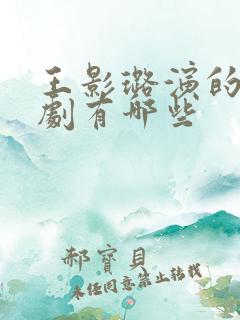 王影璐演的
劇有哪些
郝寶貝
未任同意禁止转載